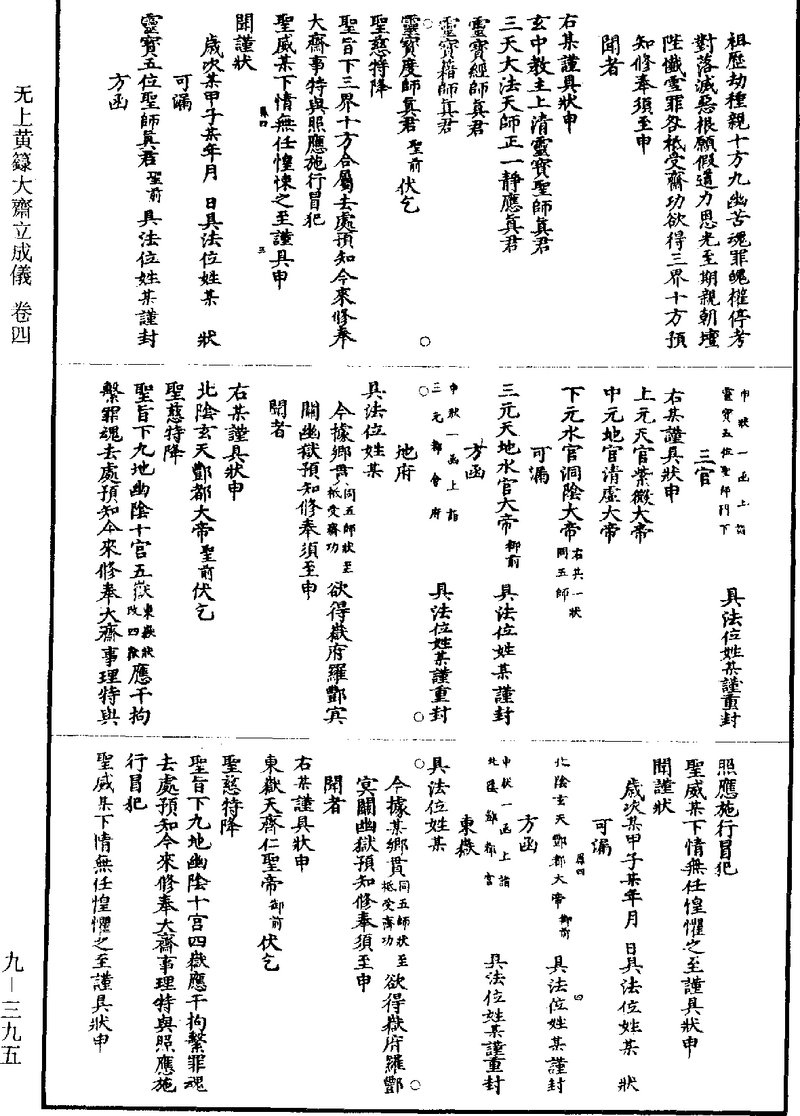 祖歷劫種親十方九幽苦魂罪魄權停考
對落滅惡根願假道力恩光至期親朝壇
陛懺雪罪各祇受齋功欲得三界十方預
知修奉須至申
聞者
右某謹具狀申
玄中教主上清靈寶聖師真君
三天大法天師正一靜應真君
靈寶經師真君
靈寶籍師真君
靈寶度師真君 聖前 伏乞
聖慈特降
聖旨下三界十方合屬去處預知今來修奉
大齋事特與照應施行冒犯
聖威某下情無任惶悚之至謹具申
聞謹狀
歲次某甲子某年月 日具法位姓某 狀
可漏
靈寶五位聖師真君 聖前 具法位姓某謹封
方函
申狀一函上詣
靈寶五位聖師門下 具法位姓某謹重封
三官
右某謹具狀申
上元天官紫微大帝
中元地官清虛大帝
下元水官洞陰大帝 右共一狀同五師
可漏
三元天地水官大帝 御前 具法位姓某謹封
方函
申狀一函上詣
三元都會府 具法位姓某謹重封
地府
具法位姓某
今據鄉貫 同五師狀至祇受齋功 欲得嶽府羅酆冥
關幽獄預知修奉須至申
聞者
右某謹具狀申
北陰玄天酆都大帝 聖前 伏乞
聖慈特降
聖旨下九地幽陰十宮五嶽 東嶽狀改四嶽 應干拘
繫罪魂去處預知今來修奉大齋事理特與
照應施行冒犯
聖威某下情無任惶懼之至謹具狀申
聞謹狀
歲次某甲子某年月 日具法位姓某 狀
可漏
北陰玄天酆都大帝 御前 具法位姓某謹封
方函
申狀一函上詣
北陰酆都宮 具法位姓某謹重封
東嶽
具法位姓某
今據某鄉貫 同五師狀至祇受齋功 欲得嶽府羅酆
冥關幽獄預知修奉須至申
聞者
右某謹具狀申
東嶽天齊仁聖帝 御前 伏乞
聖慈特降
聖旨下九地幽陰十宮四嶽應干拘繫罪魂
去處預知今來修奉大齋事理特與照應施
行冒犯
聖威某下情無任惶懼之至謹具狀申
无上黃籙大齋立成儀 卷四
九—三九五